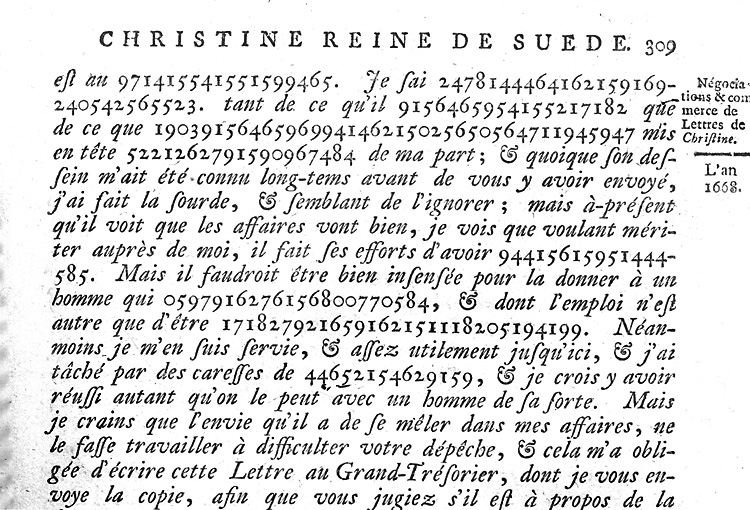 CHRISTINE REINE DE SUEDE. 309
est au 971415541551599465. Je sai 2478144464162159169-
240542565523. tant de ce qu'il 9156465954155217182 que
de ce que 19039156465969941462150256505647119459​47 mis
en tête 5221262791590967484 de ma part; & quoique son des-
sein m'ait été connu long-tems avant de vous y avoir envoyé,
j'ai fait la sourde, & semblant de l'ignorer; mais à-présent
qu'il voit que les affaires vont bien, je vois que voulant méri-
ter auprès de moi, il fait ses efforts d'avoir 94415615951444-
585. Mais il faudroit être bien insensée pour la donner à un
homme qui 05979162761568007705​84, & dont l'emploi n'est
autre que d'être 171827921659162151118205194199. Néan-
moins je m'en suis servie, & assez utilement jusqu'ici, & j'ai
tâché par des caresses de 44652154629159, & je crois y avoir
réussi autant qu'on le peut avec un homme de sa sorte. Mais
je crains que l'envie qu'il a de se mêler dans mes affaires, ne
le fasse travailler à difficulter votre dépêche, & cela m'a obli-
gée d'écrire cette Lettre au Grand-Trésorier, dont je vous en-
voye la copie, afin que vous jugiez s'il est à propos de la
Négocia-
tions & com
merce de
Lettres de
Christine.
L'an
1668.